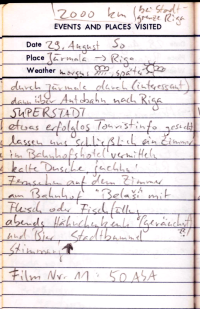 2000 km (bei Stadt-
grenze Riga
EVENTS AND PLACES VISITED
Date 23. August So
Place Jūrmala → Riga
Weather morgens, später
durch Jūrmala durch (interessant)
dann über Autobahn nach Riga
SUPERSTADT
etwas erfolglos Touristinfo gesucht
lassen uns schließlich ein Zimmer
im Bahnhofshotel vermitteln
kalte Dusche, juchhu
Fernsehn auf dem Zimmer
am Bahnhof mit
Fleisch oder Fischfüllung
abends Hähnchenkeule (geräuchert)
und Bier, Stadtbummel
Stimmung
Film Nr. 11 - 50 ASA